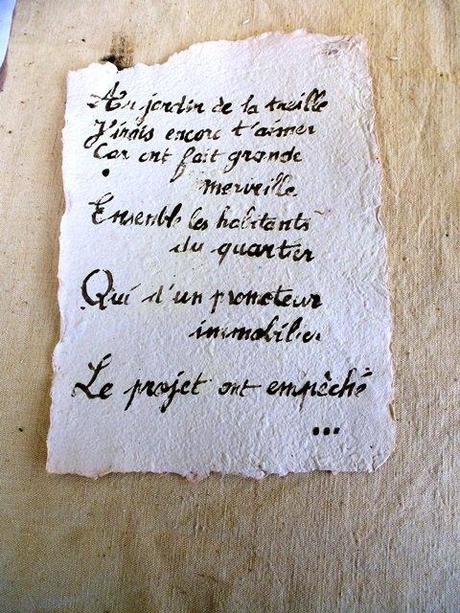 Au jardin de la treille
J'irais encore t'aimer
Car ont fait grande
merveille
Ensemble les habitants
du quartier
Qui d'un promoteur
immobilier
Le projet ont empêché
...